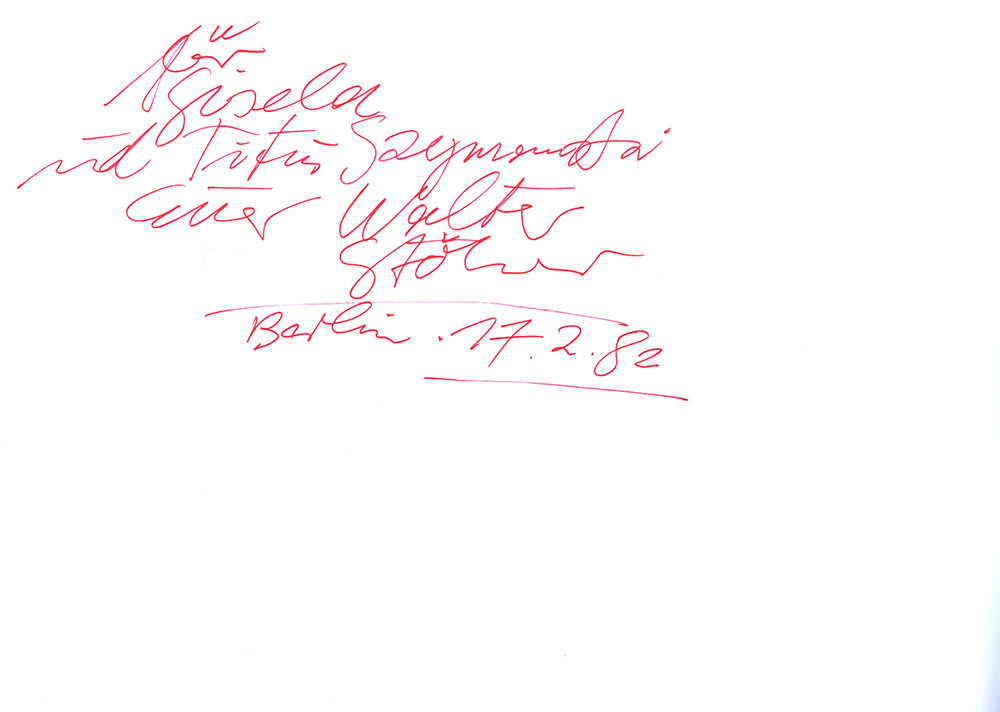 für
Gisela
und Titus
Euer Walter
Stöhrer
Berlin . 17.2.82